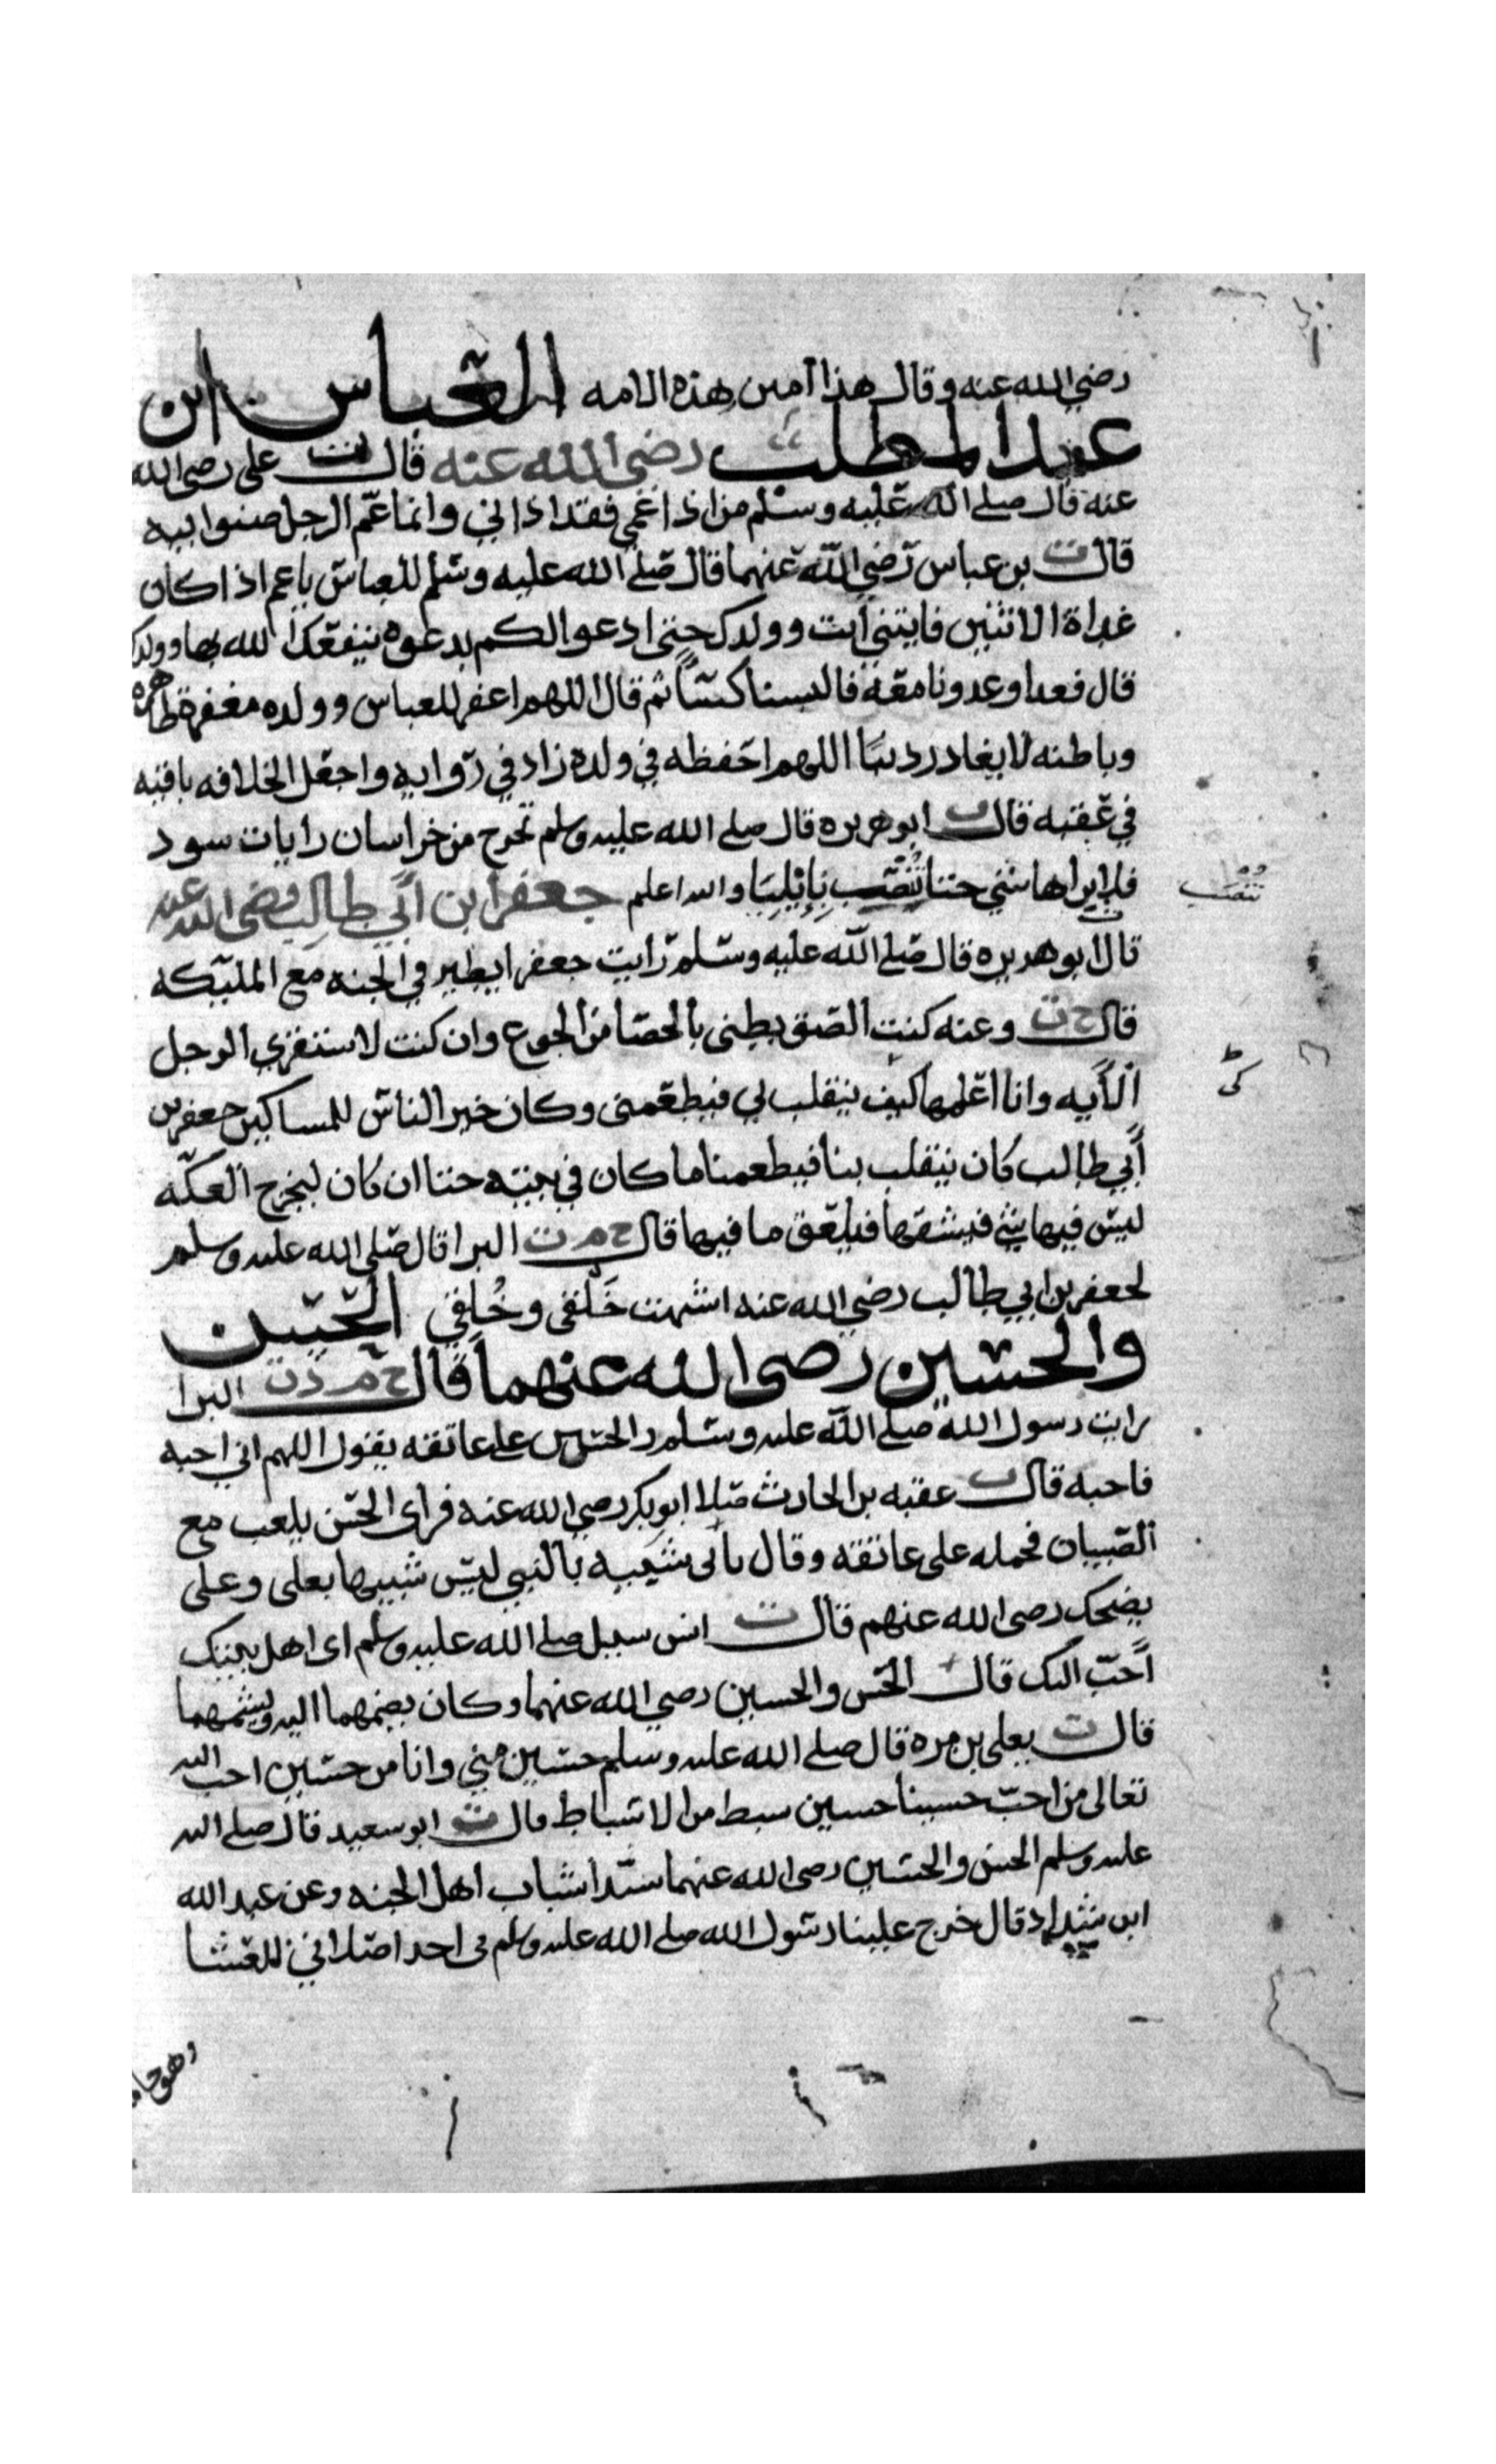 رضي الله عنه وقال هذا امين هذه الامه العباس ابن
عبد المطلب رضي الله عنه قال ت علي رضي الله
عنه قال صلى الله عليه وسلم من اذا عمي فقد اذاني وانما عم الرجل صنوا ابيه
قال ت بن عباس رضي الله عنهما قال صلى الله عليه وسلم للعباس يا عم اذا كان
غداة الاثنين فايتني انت وولدك حتى ادعوا لكم بدعوه ينفعك الله بها وولدك
قال فغدا وغدونا معه فالبسنا كسا ثم قال اللهم اغفر للعباس وولده مغفرة ظاهره
وباطنه لا يغادر دنبا اللهم احفظه في ولده زاد في روايه واجعل الخلافه باقيه
في عقبه قال ت ابو هريره قال صلى الله عليه وسلم تخرج من خراسان رايات سود
فلا يردها شي حتا تنصب بايليا والله اعلم جعفر ابن ابي طالب رضي الله عنه
تنصب
قال ابو هريره قال صلى الله عليه وسلم رايت جعفرا يطير في الجنه مع المليكه
قال ح ت وعنه كنت الصق بطني بالحصا من الجوع وان كنت لاستقري الرجل
الايه وانا اعلمها كيف ينقلب لي فيطعمني وكان خير الناس للمساكين جعفر بن
ابي طالب كان ينقلب بنا فيطعمنا ما كان في بيته حتا ان كان ليخرج العكه
ليس فيها شي فيشقها فيلعق ما فيها قال ح م ت البرا قال صلى الله عليه وسلم
لجعفر بن ابي طالب رضي الله عنه اشبهت خَلقي وخُلقي الحسن
والحسين رضي الله عنهما قال ح م د ت البرا
رايت رسول الله صلى الله عليه وسلم والحسن على عاتقه يقول اللهم اني احبه
فاحبه قال عقبه بن الحارث صلا ابو بكر رضي الله عنه فراى الحسن يلعب مع
الصبيان فحمله على عاتقه وقال بابي شبيه بالنبي ليس شبيها بعلي وعلي
يضحك رضي الله عنهم قال ت انس سيل صلى الله عليه وسلم اي اهل بيتك
احب اليك قال الحسن والحسين رضي الله عنهما وكان يضمهما اليه ويشمهما
قال ت يعلى بن مره قال صلى الله عليه وسلم حسين مني وانا من حسين احب الله
تعالى من احب حسينا حسين سبط من الاسباط قال ت ابو سعيد قال صلى الله
عليه وسلم الحسن والحسين رضي الله عنهما سيدا شباب اهل الجنه وعن عبد الله
ابن شداد قال خرج علينا رسول الله صلى الله عليه وسلم في احد اصلاتي للعشا
وهو حا